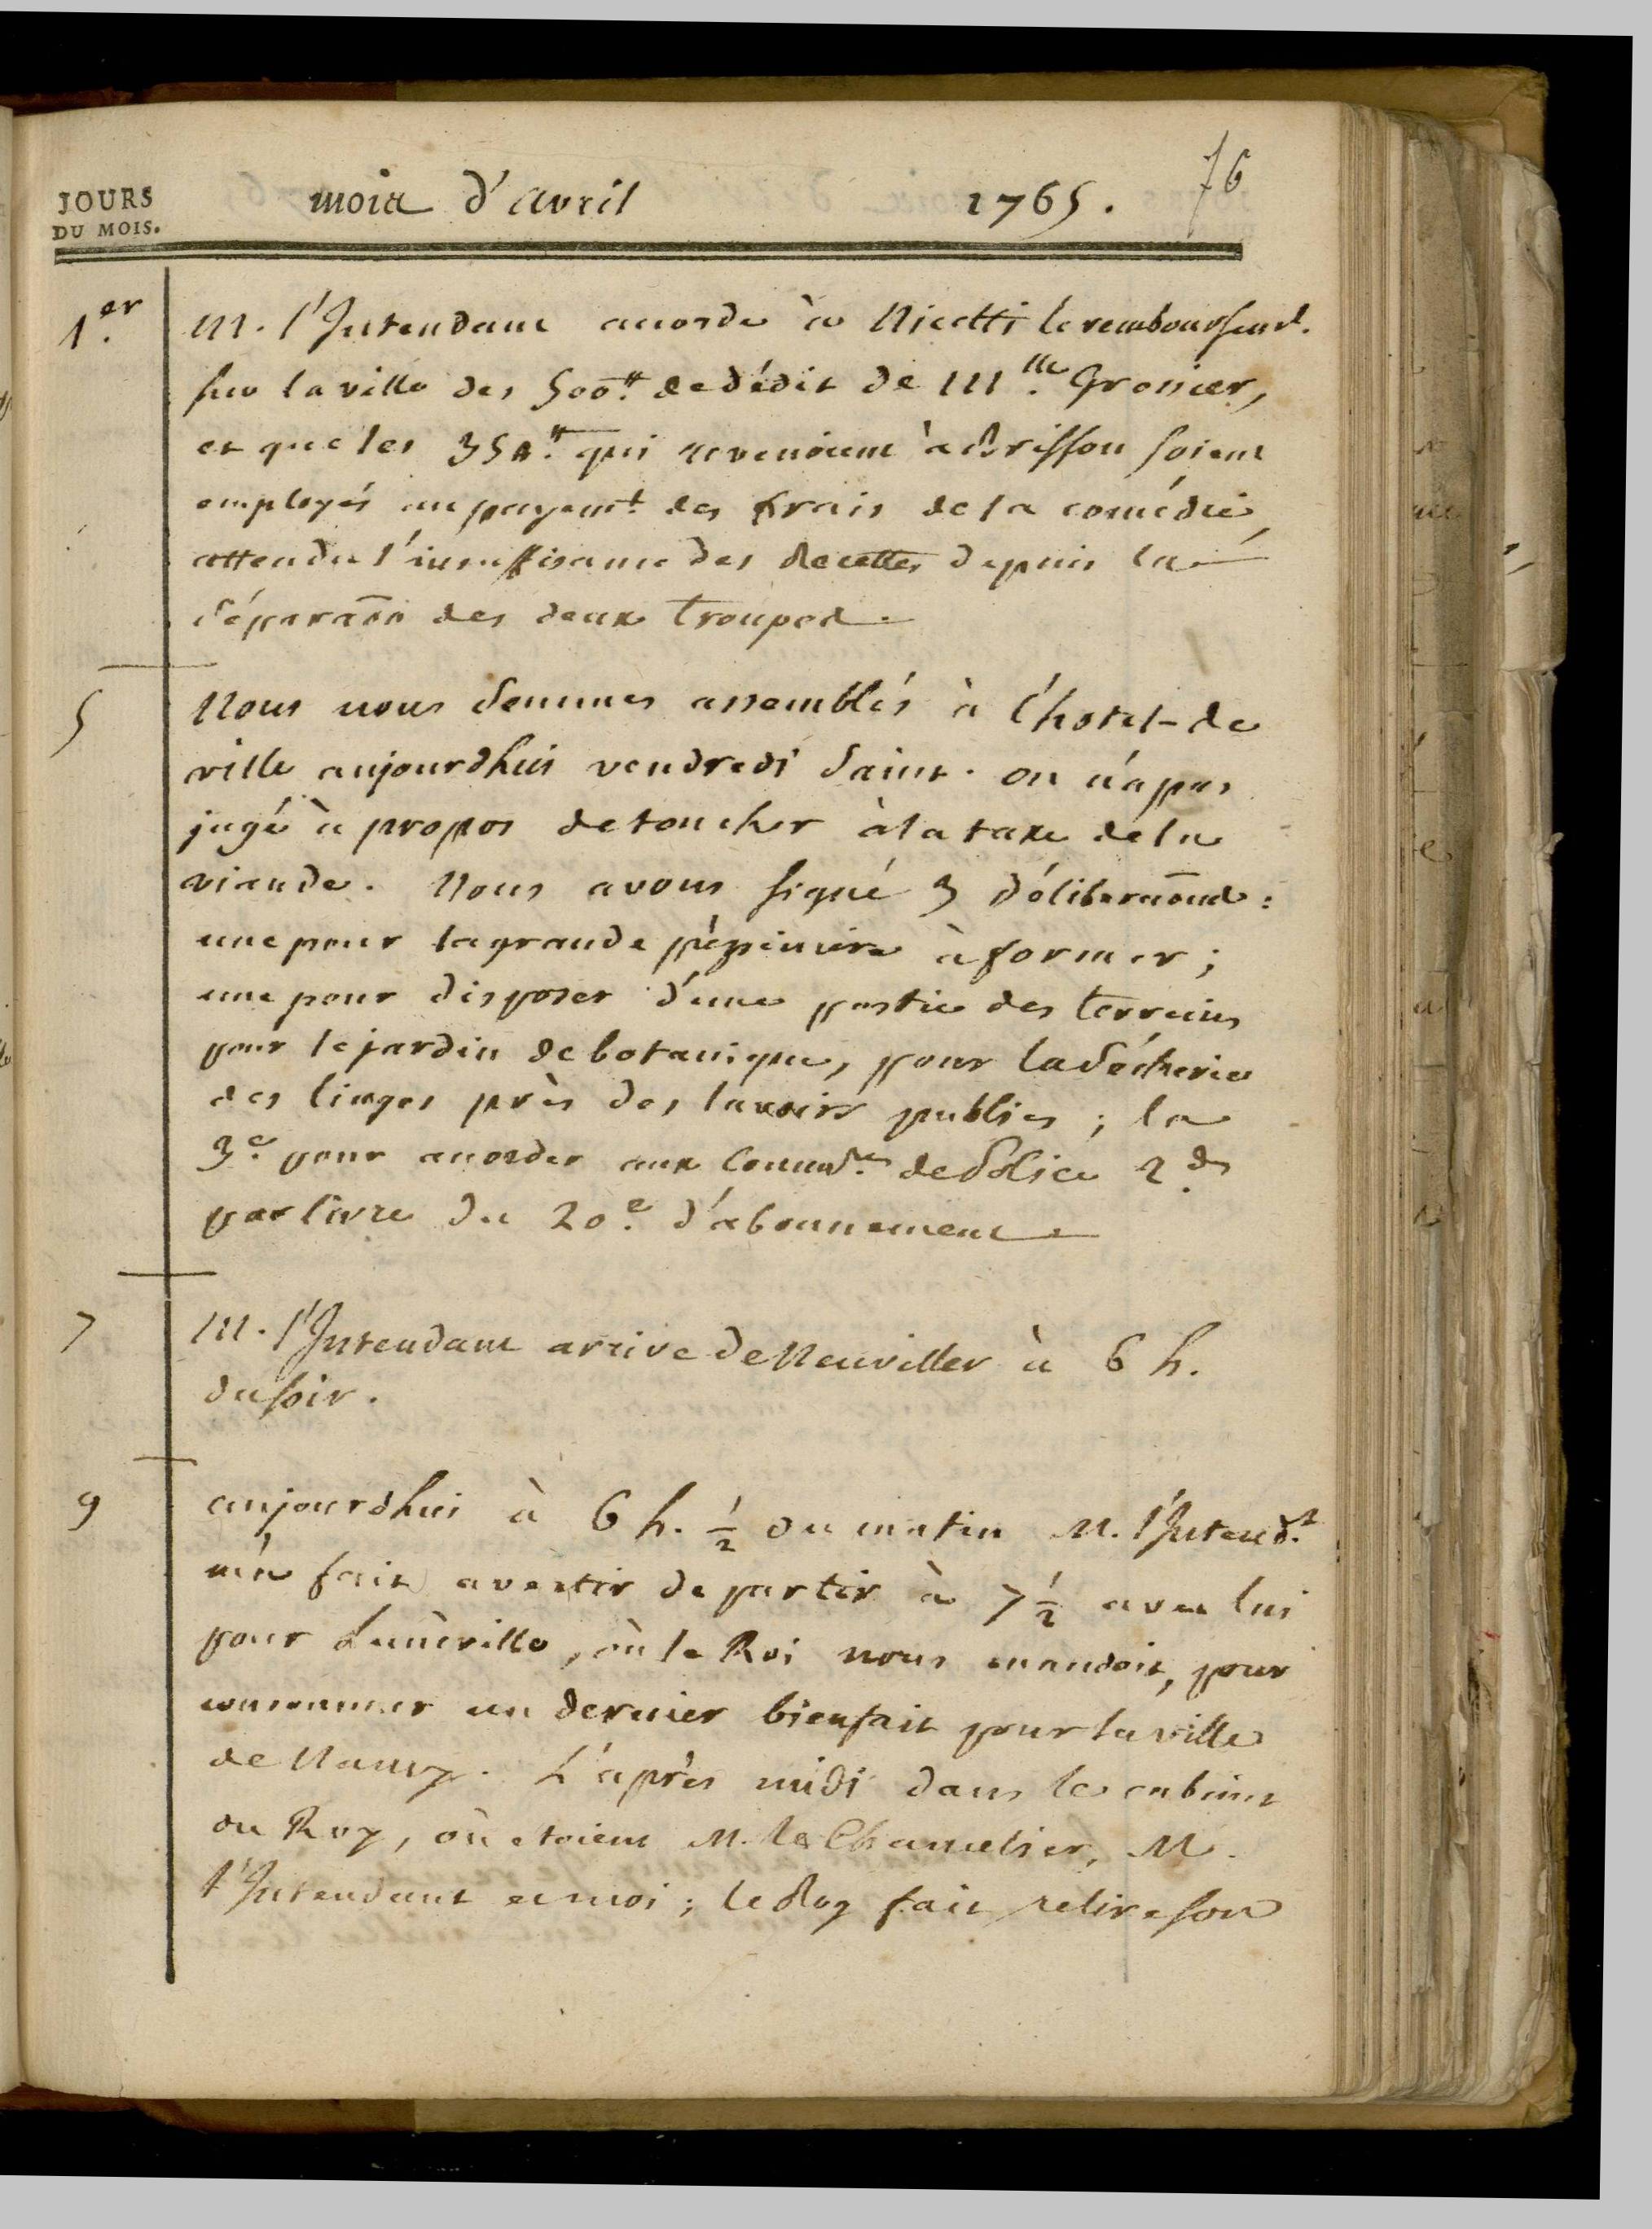 76
JOURS
DU MOIS.
mois d'avril 1765.
1.er
M. l'Intendant accorde à Nicetti le remboursemt.
sur la ville des 500.tt de dédit de Mlle. Grosier,
et que les qui revenoient à Brisson soient
employés au payemt. des frais de la comédie,
attendu l'insuffisance des Recettes depuis la
séparaōn des deux Troupes.
5
Nous nous sommes assemblés à l'hotel-de
ville aujourdhui vendredi saint. on n'a pas
jugé à propos de toucher à la taxe de la
viande. Nous avons signé 3 déliberaōns:
une pour la grande pépiniere à former;
une pour disposer d'une partie des terreins
pour le jardin de botanique, pour la sécherie
des linges près des lavoirs publics; la
3.e pour accorder aux Commres. de Police 2.ds
par livre du 20.e d'abonnement
7
M. l'Intendant arrive de Neuviller à 6 h.
du soir.
9
aujourdhui à 6 h. 1/2 du matin M. l'Intendt.
m'a fait avertir de partir à 7 1/2 avec lui
pour Lunéville, où le Roi nous mandoit, pour
consommer un dernier bienfait pour la ville
de Nancy. L'après midi dans le cabinet
du Roy, où etoient M. le Chancelier, M.
l'Intendant et moi; le Roy fait relire son